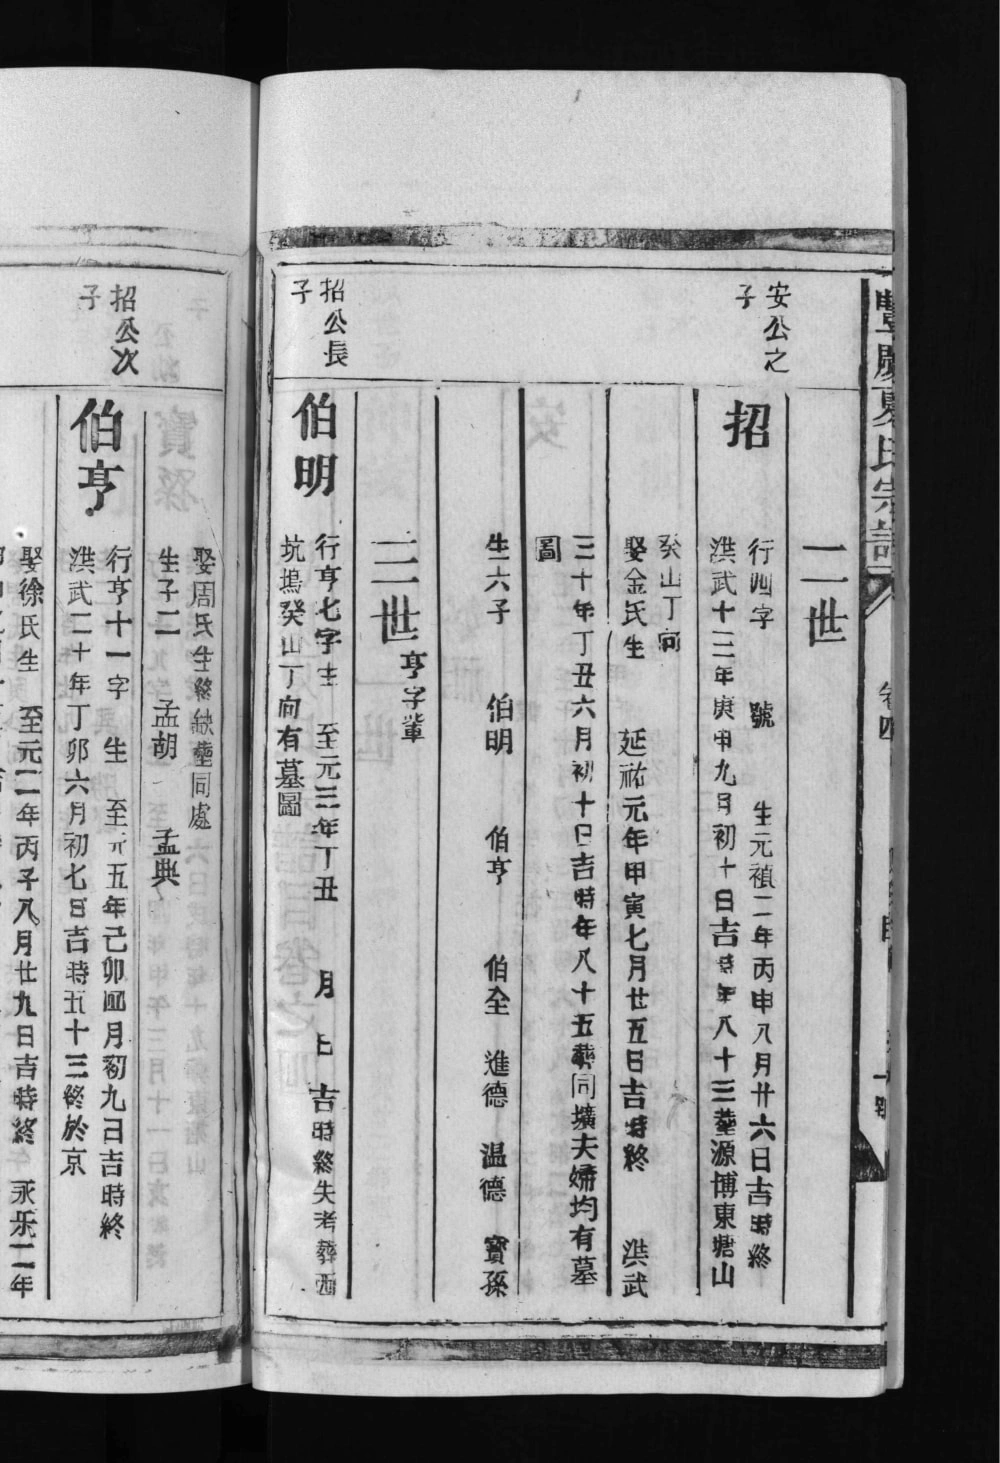 豐慶夏氏宗譜
卷四
二世
安公之
子
招
行四字　號　生元禎二年丙申八月廿六日吉時終
洪武十三年庚申九月初十日吉時年八十三塟源博東塘山
癸山丁向
娶金氏生　延祐元年甲寅七月廿五日吉時終　洪武
三十年丁丑六月初十日吉時年八十五葬同壙夫婦均有墓
圖
生六子　伯明　伯亨　伯全　進德　温德　寶孫
三世
亨字輩
招公長
子
伯明
行亨七字生　至元三年丁丑　月　日　吉時終失考葬西
坑塢癸山丁向有墓圖
娶周氏生終缺塟同處
生子二　孟胡　孟典
招公次
子
伯亨
行亨十一字　生　至元五年己卯四月初九日吉時終
洪武二十年丁卯六月初七日吉時五十三終於京
娶徐氏生　至元二年丙子八月廿九日吉時終　永乐二年